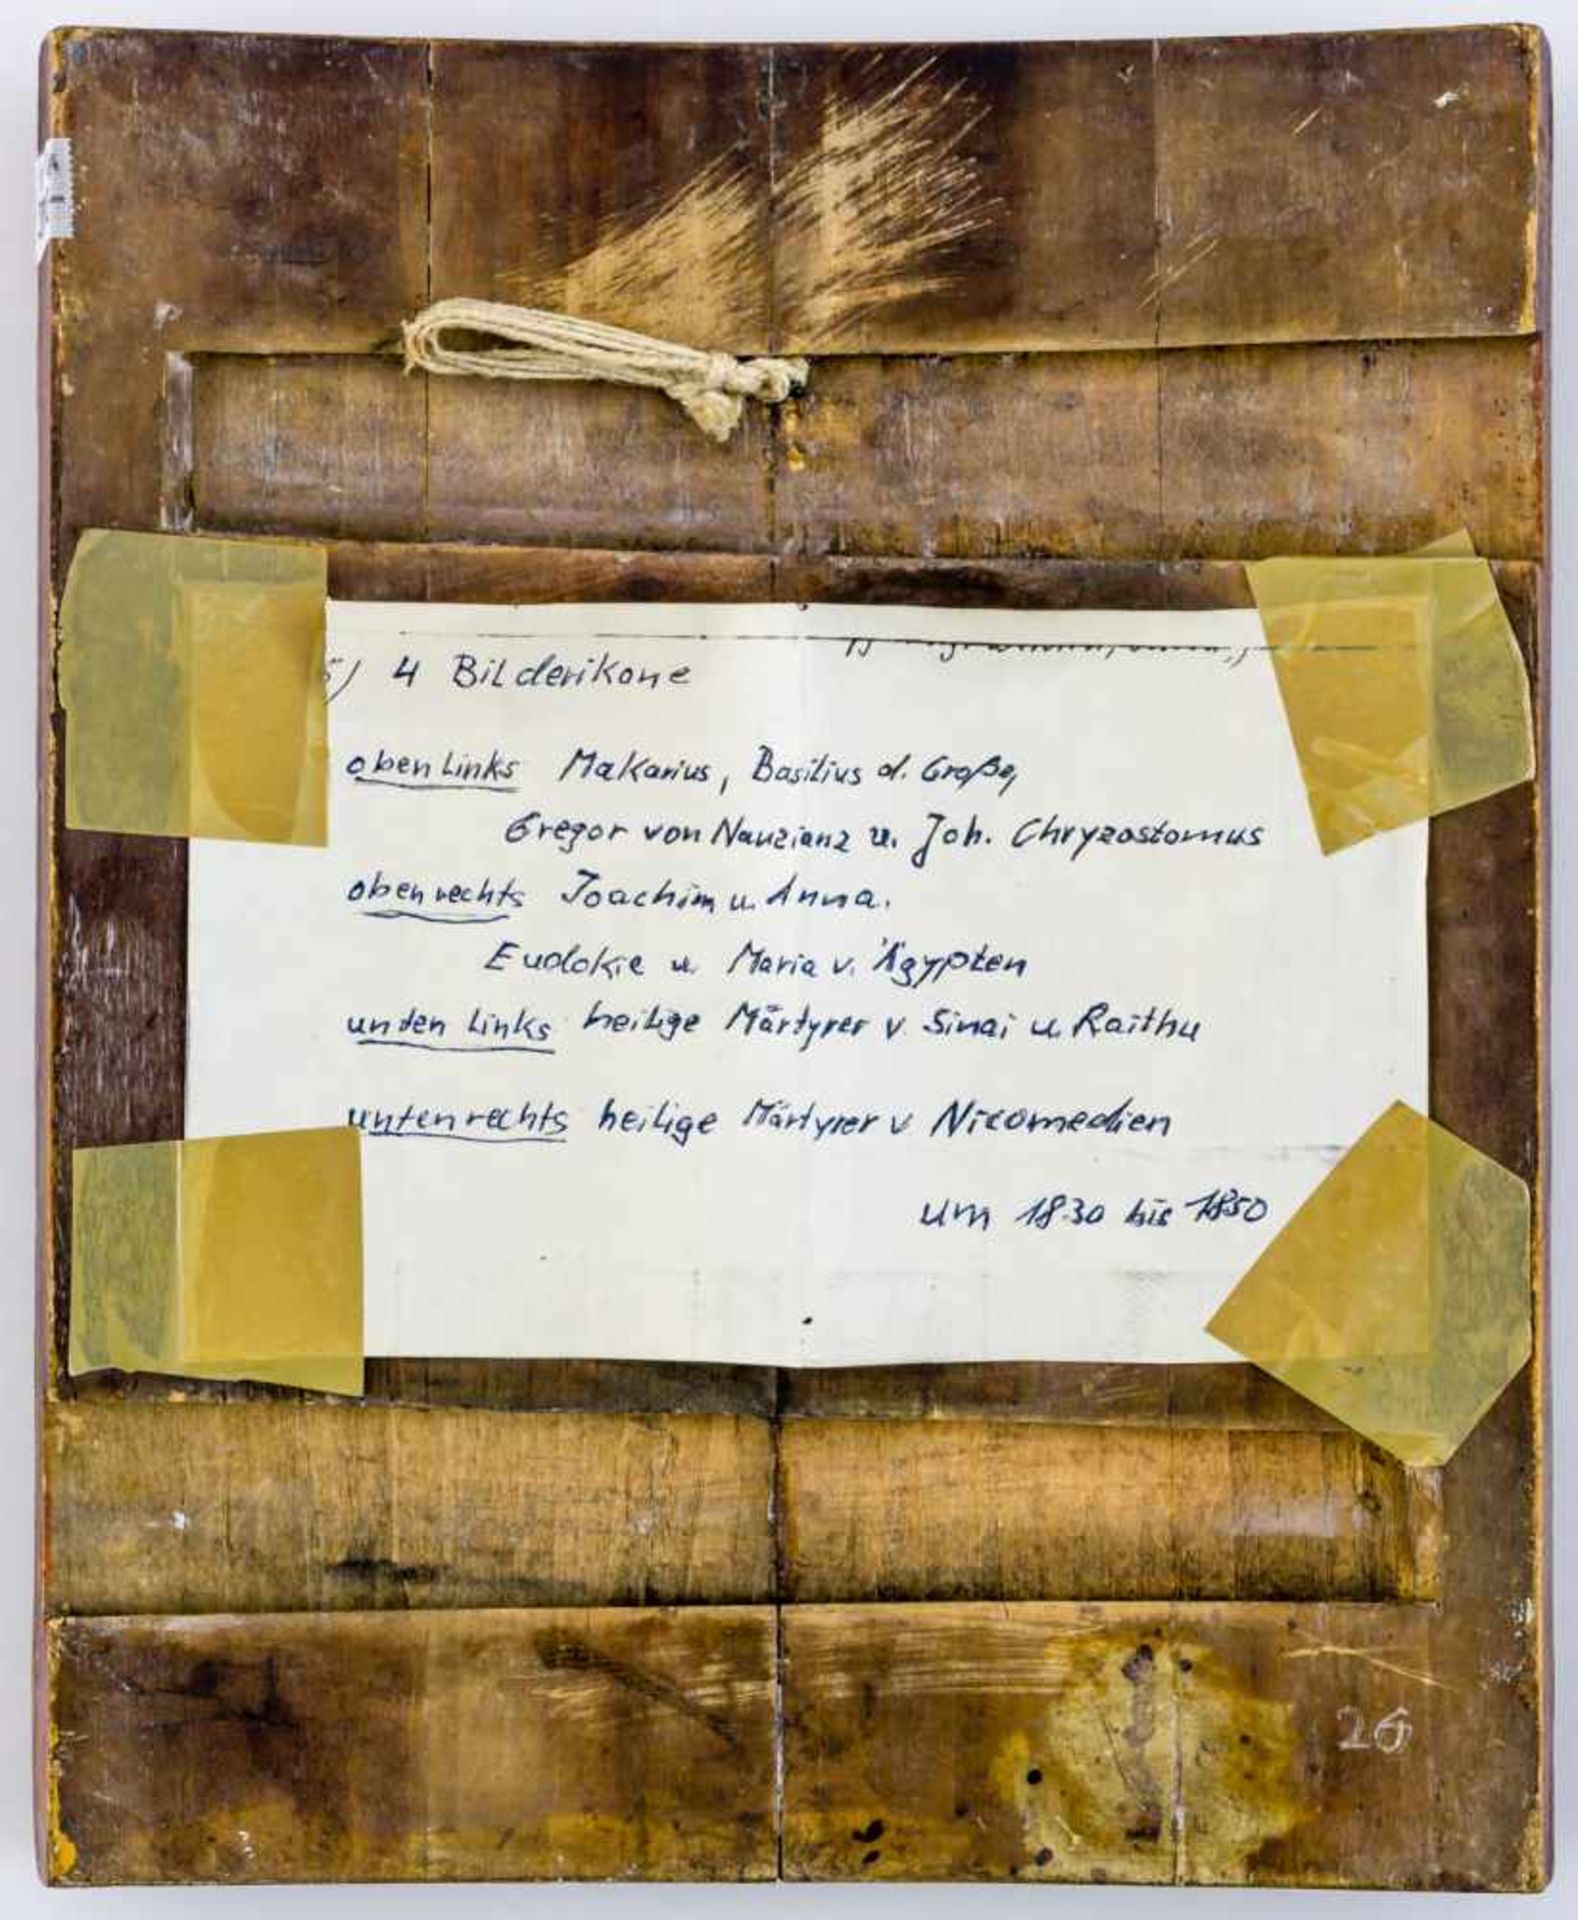 5) 4 Bilderikone
oben links Makarius, Basilius d. Große,
Gregor von Nanzianz u. Joh. Chryzostomus
oben rechts Joachim u. Anna.
Eudokie u. Maria v. Ägypten
unten links heilige Märtyrer v Sinai u Raithu
unten rechts heilige Märtyrer v Nicomedien
um 1830 bis 1850
26